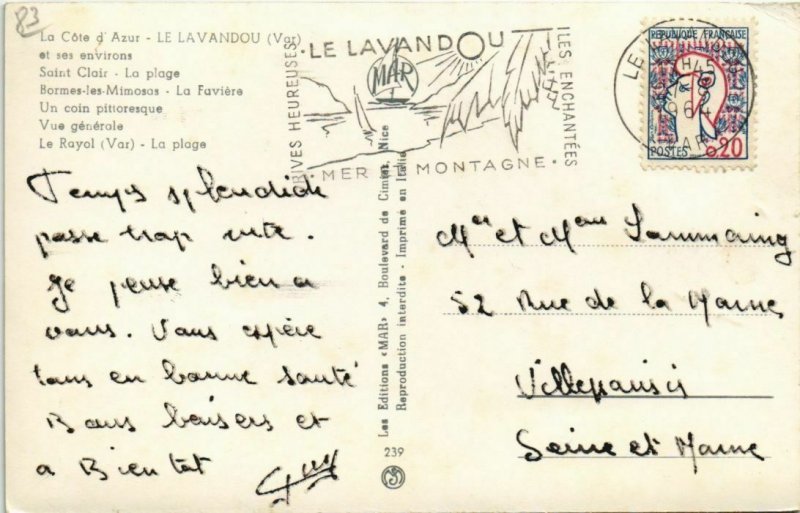 83
La Côte d'Azur - LE LAVANDOU (Var)
et ses environs
Saint Clair - La plage
Bormes-les-Mimosas - La Favière
Un coin pittoresque
Vue générale
Le Rayol (Var) - La plage
RIVES HEUREUSES
LE LAVANDOU
ILES ENCHANTÉES
MER MONTAGNE
REPUBLIQUE FRANÇAISE
POSTES 0,20
LE
1964
VAR
Temps splendide
passe trop vite.
Je pense bien a
vous. Vous espère
tous en bonne santé
Bons baisers et
a Bientot
Guy
Les Editions «MAR» 4, Boulevard de Cimiez, Nice
Reproduction interdite - Imprimé en Italie
MAR
239
Mr et Mme
52 Rue de la Marne
Villeparisis
Seine et Marne